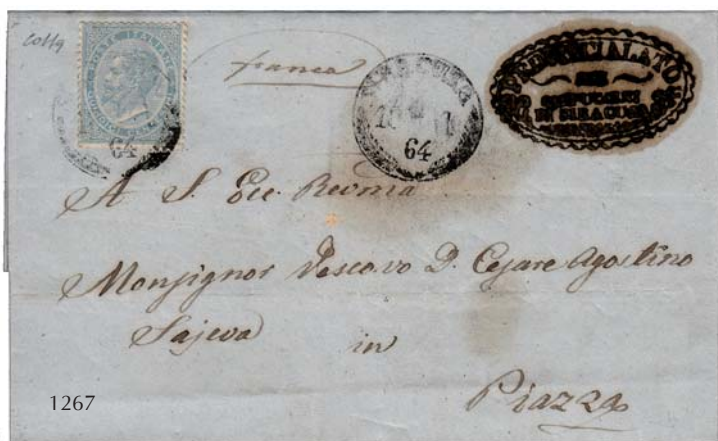 franca
POSTE ITALIANE
QUINDICI CENT
64
64
PROVINCIALATO
DEI
CAPPUCCINI
DI SIRACUSA
A S. Ecc. Revma
Monsignor Vescovo D. Cesare Agostino
Sajeva in
Piazza
1267